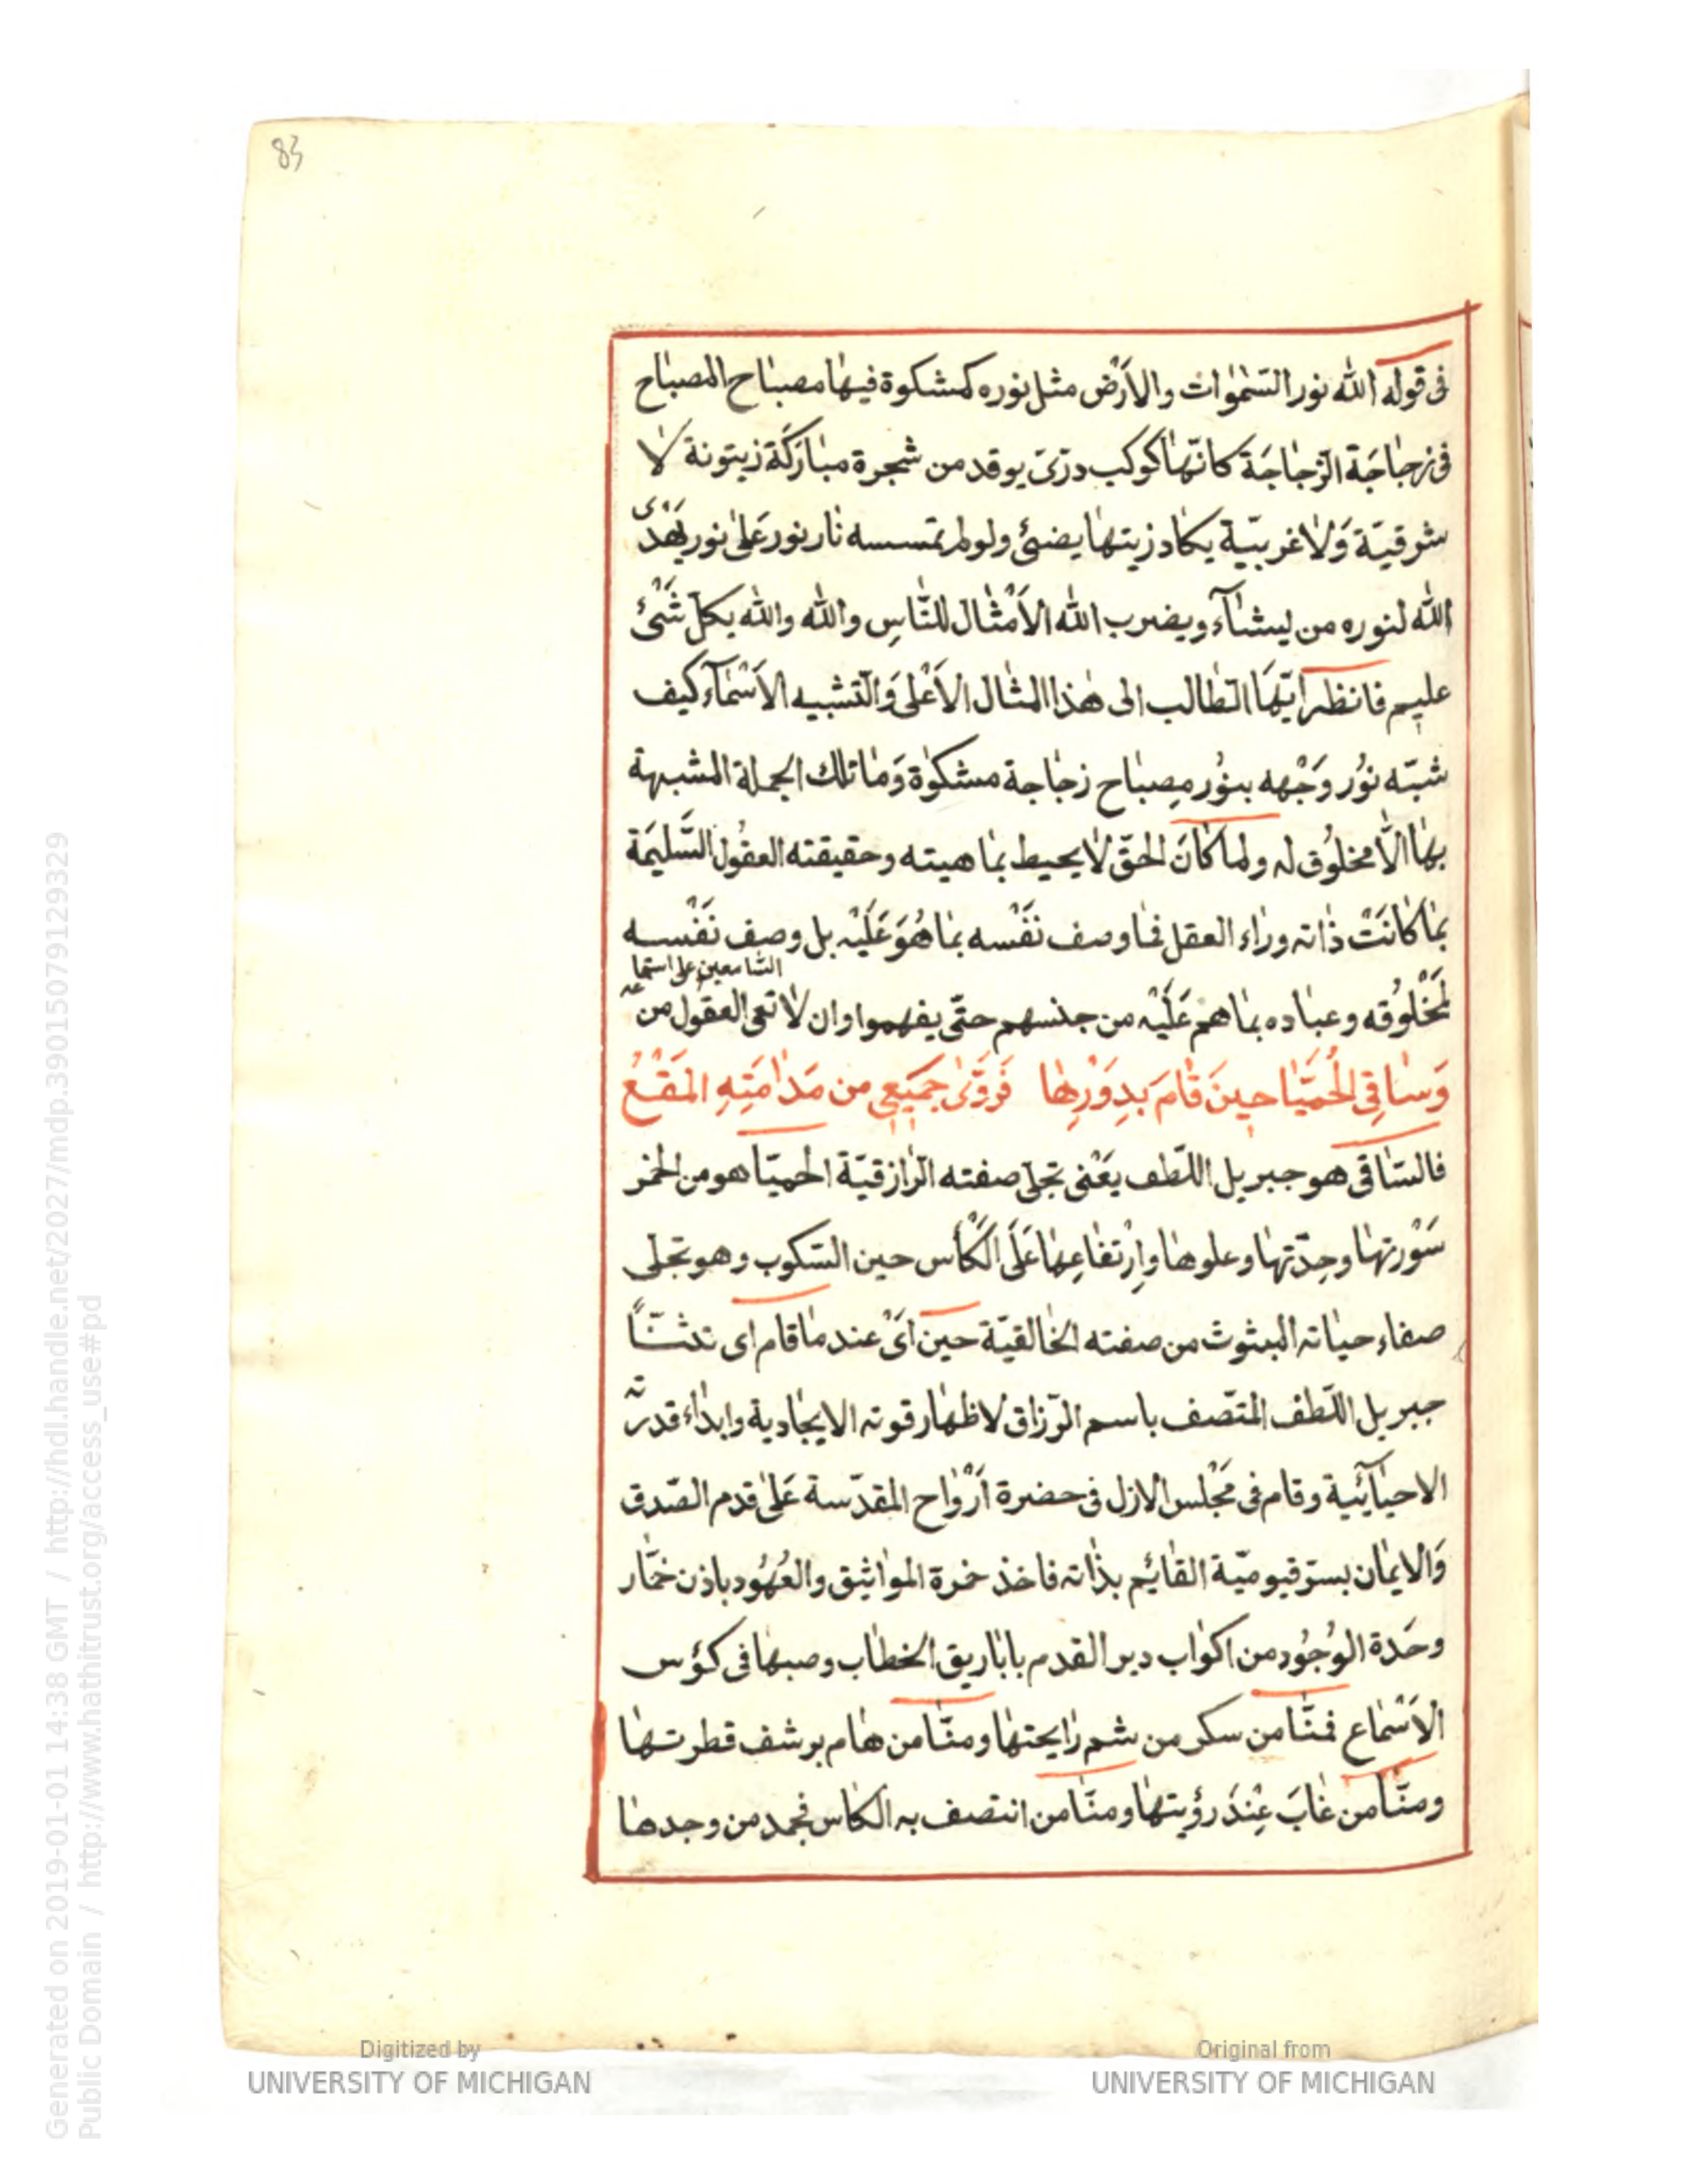 83
فى قوله الله نور السّمٰوٰات والاَرْض مثل نوره كمشكوة فيها مصباح المصباح
فى زجاجَة الزّجاجَة كانّها كوكب درّىّ يوقد من شجرة مباركَة زيتونة لا
شرقيّة وَلا غربيّة يكاد زيتها يضئ ولو لم تمسسه نار نور عَلىٰ نور يَهْدى
الله لنوره من يشآء ويضرب الله الاَمْثال للنّاسِ والله والله بكلّ شَىْئ
عليم فانظر ايّهَا الطّالب الى هٰذا المثال الاَعْلى وَالتّشبيه الاَسْمآء كيف
شبّه نوُر وَجْهه بنوُر مِصباح زجاجة مشكوٰة وَمٰا تلك الجملة المشبهة
بهٰا الّا مخلوُق له ولما كانَ الحقّ لا يحيط بمٰا هيته وحقيقته العقوُل السَّليمَة
بمٰا كانَتْ ذاته ورٰاء العقل فما وصف نَفْسه بمٰا هُوَ عَلَيْه بل وصف نَفْسه
لمَخْلوُقه وعباده بمٰا هم عَلَيْه من جنسهم حتّى يفهموا وان لا تعى العقوُل من
السّامعين على استماعه
وَسٰاقِى الحُمَيّا حينَ قٰامَ بدِوَرْهٰا فَرَوّىٰ جَميَعى من مَدٰامَتِهِ المَقْنعُ
فالسّاقى هو جبريل اللّطف يَعْنى تجلّى صفته الرّازقيّة الحميّا هو من الخمر
سَوْرتهٰا وحِدّتهٰا وعلوهٰا واِرْتفٰاعِهٰا عَلَى الكَأْس حين السّكوب وهو تجلى
صفاء حياته المبثوث من صفته الخٰالقيّة حين اَىْ عند مٰا قام اى
جبريل اللّطف المتّصف باسم الرّزاق لاظهٰار قوته الايجٰادية وابدٰاء قدرته
الاحيٰآئية وقام فى مَجْلس الازل فى حضرة اَرْوٰاح المقدّسة عَلىٰ قدم الصّدق
وَالايمٰان بسرّ قيوميّة القٰائِم بذٰاته فاخذ خمرة الموٰاثيق والعُهوُد باذن خمّار
وحَدة الوُجوُد من اكوٰاب دير القدم باباريق الخطٰاب وصبهٰا فى كؤس
الاَسْمٰاع فمنّا من سكر من شم رٰايحتهٰا ومنّا من هٰام برشف قطرتهٰا
ومنّا من غٰابَ عِنْدَ رؤيتهٰا ومنّا من انتصف به الكاس فجمد من وجدهٰا
Digitized by
UNIVERSITY OF MICHIGAN
Original from
UNIVERSITY OF MICHIGAN
Generated on 2019-01-01 14:38 GMT / http://hdl.handle.net/2027/mdp.39015079129329
Public Domain / http://www.hathitrust.org/access_use#pd